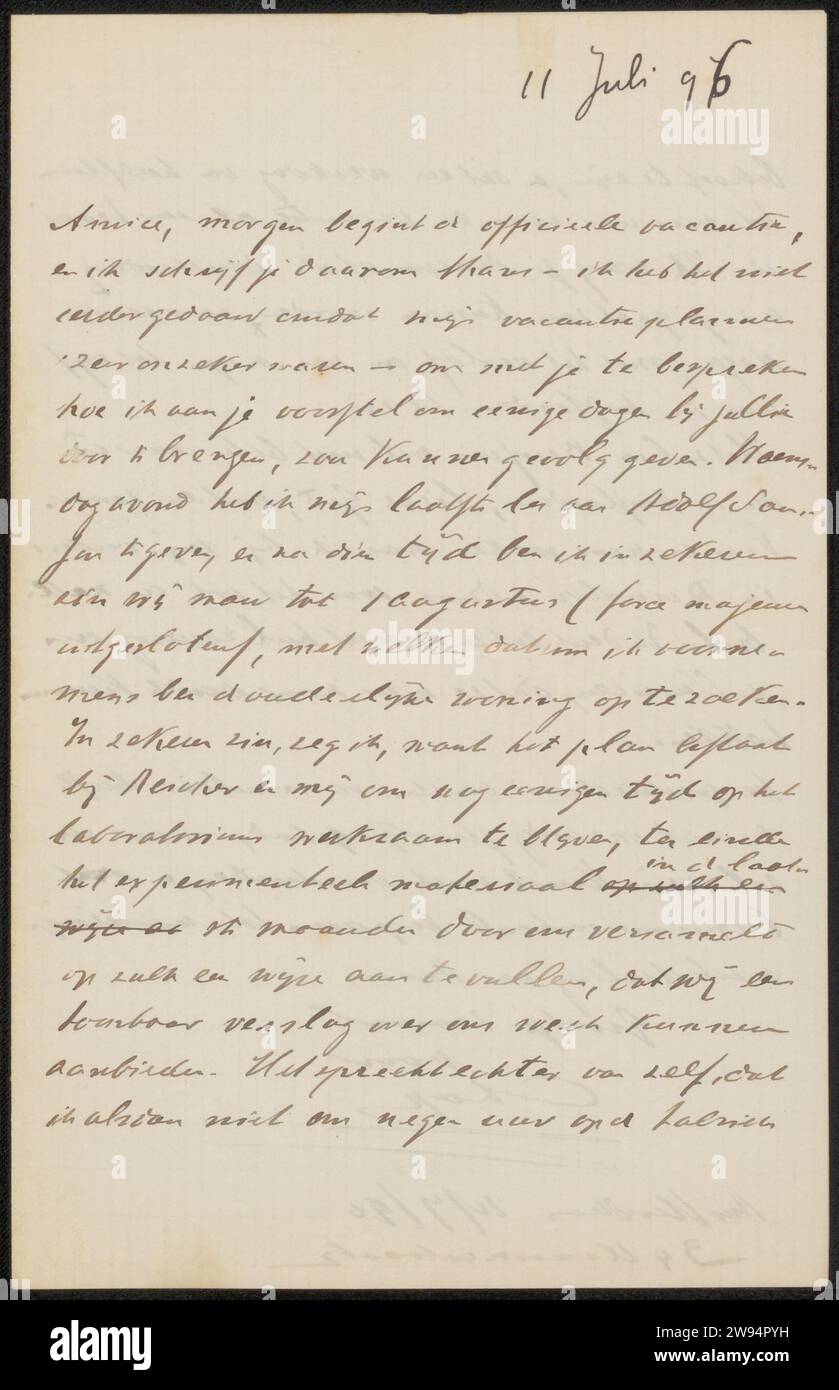 11 Juli 96
Amice, morgen begint de officieele vacantie,
en ik schrijf je daarom thans – ik heb het niet
eerder gedaan omdat mijn vacantieplannen
zeer onzeker waren – om met je te bespreken
hoe ik aan je voorstel om eenige dagen bij jullie
door te brengen, zou kunnen gevolg geven. Woens-
dagavond heb ik mijn laatste les aan Adolf
te geven, en na dien tijd ben ik in zekeren
zin vrij man tot 1 augustus (force majeure
uitgesloten), met welken datum ik voorne-
mens ben de ouderlijke woning op te zoeken.
In zekeren zin, zeg ik, want het plan bestaat
bij Reicher en mij om nog eenigen tijd op het
laboratorium werkzaam te blijven, ten einde
in de laatste
het experimenteele materiaal op zulk een
wijze aa maanden door ons verzameld
op zulk een wijze aan te vullen, dat wij een
toonbaar verslag over ons werk kunnen
aanbieden. Het spreekt echter van zelf, dat
ik alsdan niet om negen uur op de fabriek
a
alamy
Image ID: 2W94PYH
www.alamy.com